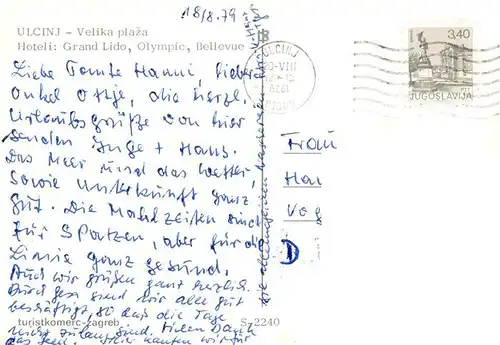 18/8.79
ULCINJ – Velika plaža
Hoteli: Grand Lido, Olympic, Bellevue
Liebe Tante Hanni, lieber
Onkel Ottje, die herzl.
Urlaubsgrüße von hier
senden Inge + Hans.
Das Meer und das Wetter,
sowie Unterkunft ganz
gut. Die Mahlzeiten sind
für Spatzen, aber für die
Linie ganz gesund.
Auch wir grüßen ganz herzlich.
sind wir alle gut
beschäftigt, so daß die Tage
nicht zu lang sind. Vielen Dank
kaufen wir für
turistkomerc-zagreb
S-2240
ULCINJ
20-VIII
3,40
JUGOSLAVIJA
Frau
Han
Vog